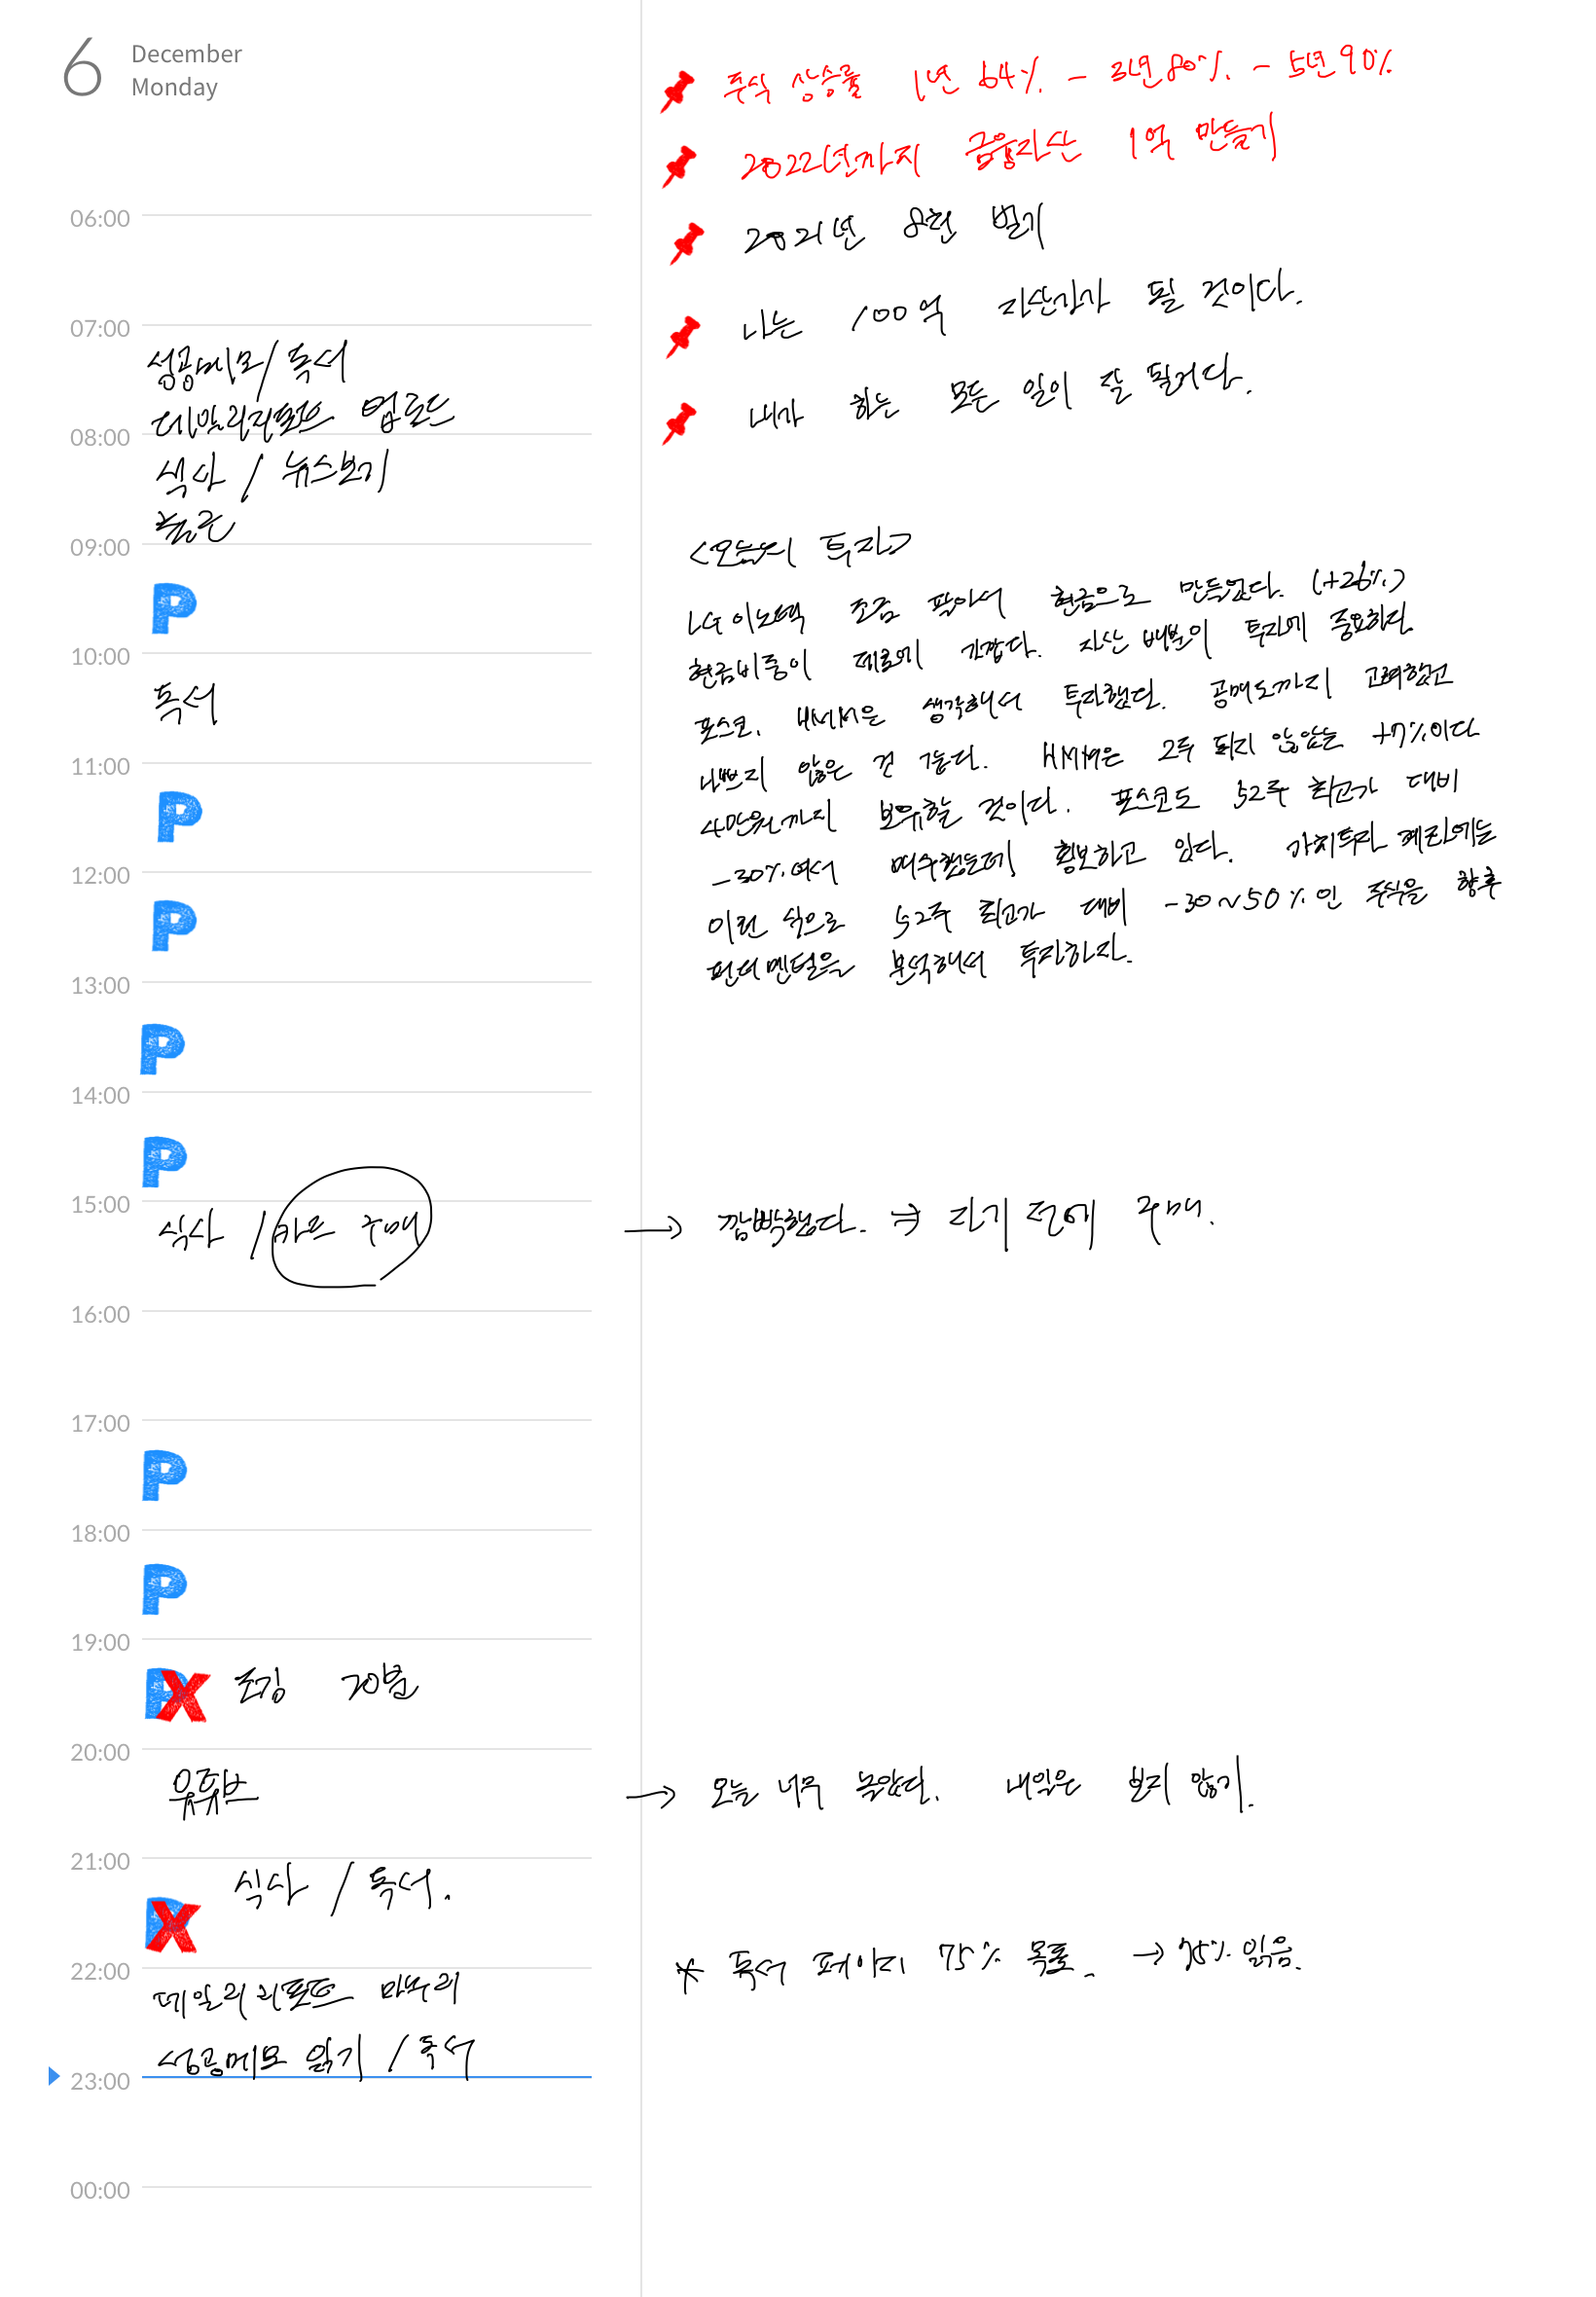 6 December
Monday
06:00
07:00
성공메모/독서
데일리리포트 업로드
08:00
식사 / 뉴스보기
출근
09:00
P
10:00
독서
11:00
P
12:00
P
13:00
P
14:00
P
15:00
식사 / 카드 구매
16:00
17:00
P
18:00
P
19:00
P X 조깅 20분
20:00
유튜브
21:00
식사 / 독서.
P X
22:00
데일리리포트 마무리
성공메모 읽기 / 독서
23:00
00:00
주식 상승률 1년 64% - 3년 80% - 5년 90%
2022년까지 금융자산 1억 만들기
2021년 8천 벌기
나는 100억 자산가가 될 것이다.
내가 하는 모든 일이 잘 될거다.
<오늘의 투자>
LG이노텍 조금 팔아서 현금으로 만들었다. (+26%)
현금비중이 제로에 가깝다. 자산 배분이 투자에 중요하다
포스코, HMM은 생각해서 투자했다. 공매도까지 고려했고
나쁘지 않은 것 같다. HMM은 2주 되지 않았는 +7%이다
4만원까지 보유할 것이다. 포스코도 52주 최고가 대비
-30%여서 매수했는데 횡보하고 있다. 가치투자 계좌에는
이런 식으로 52주 최고가 대비 -30~50%인 주식을 향후
펀더멘털을 분석해서 투자하자.
→ 깜빡했다. ⇒ 자기 전에 구매.
→ 오늘 너무 놀았다. 내일은 보지 않기.
* 독서 페이지 75% 목표. → 75% 읽음.